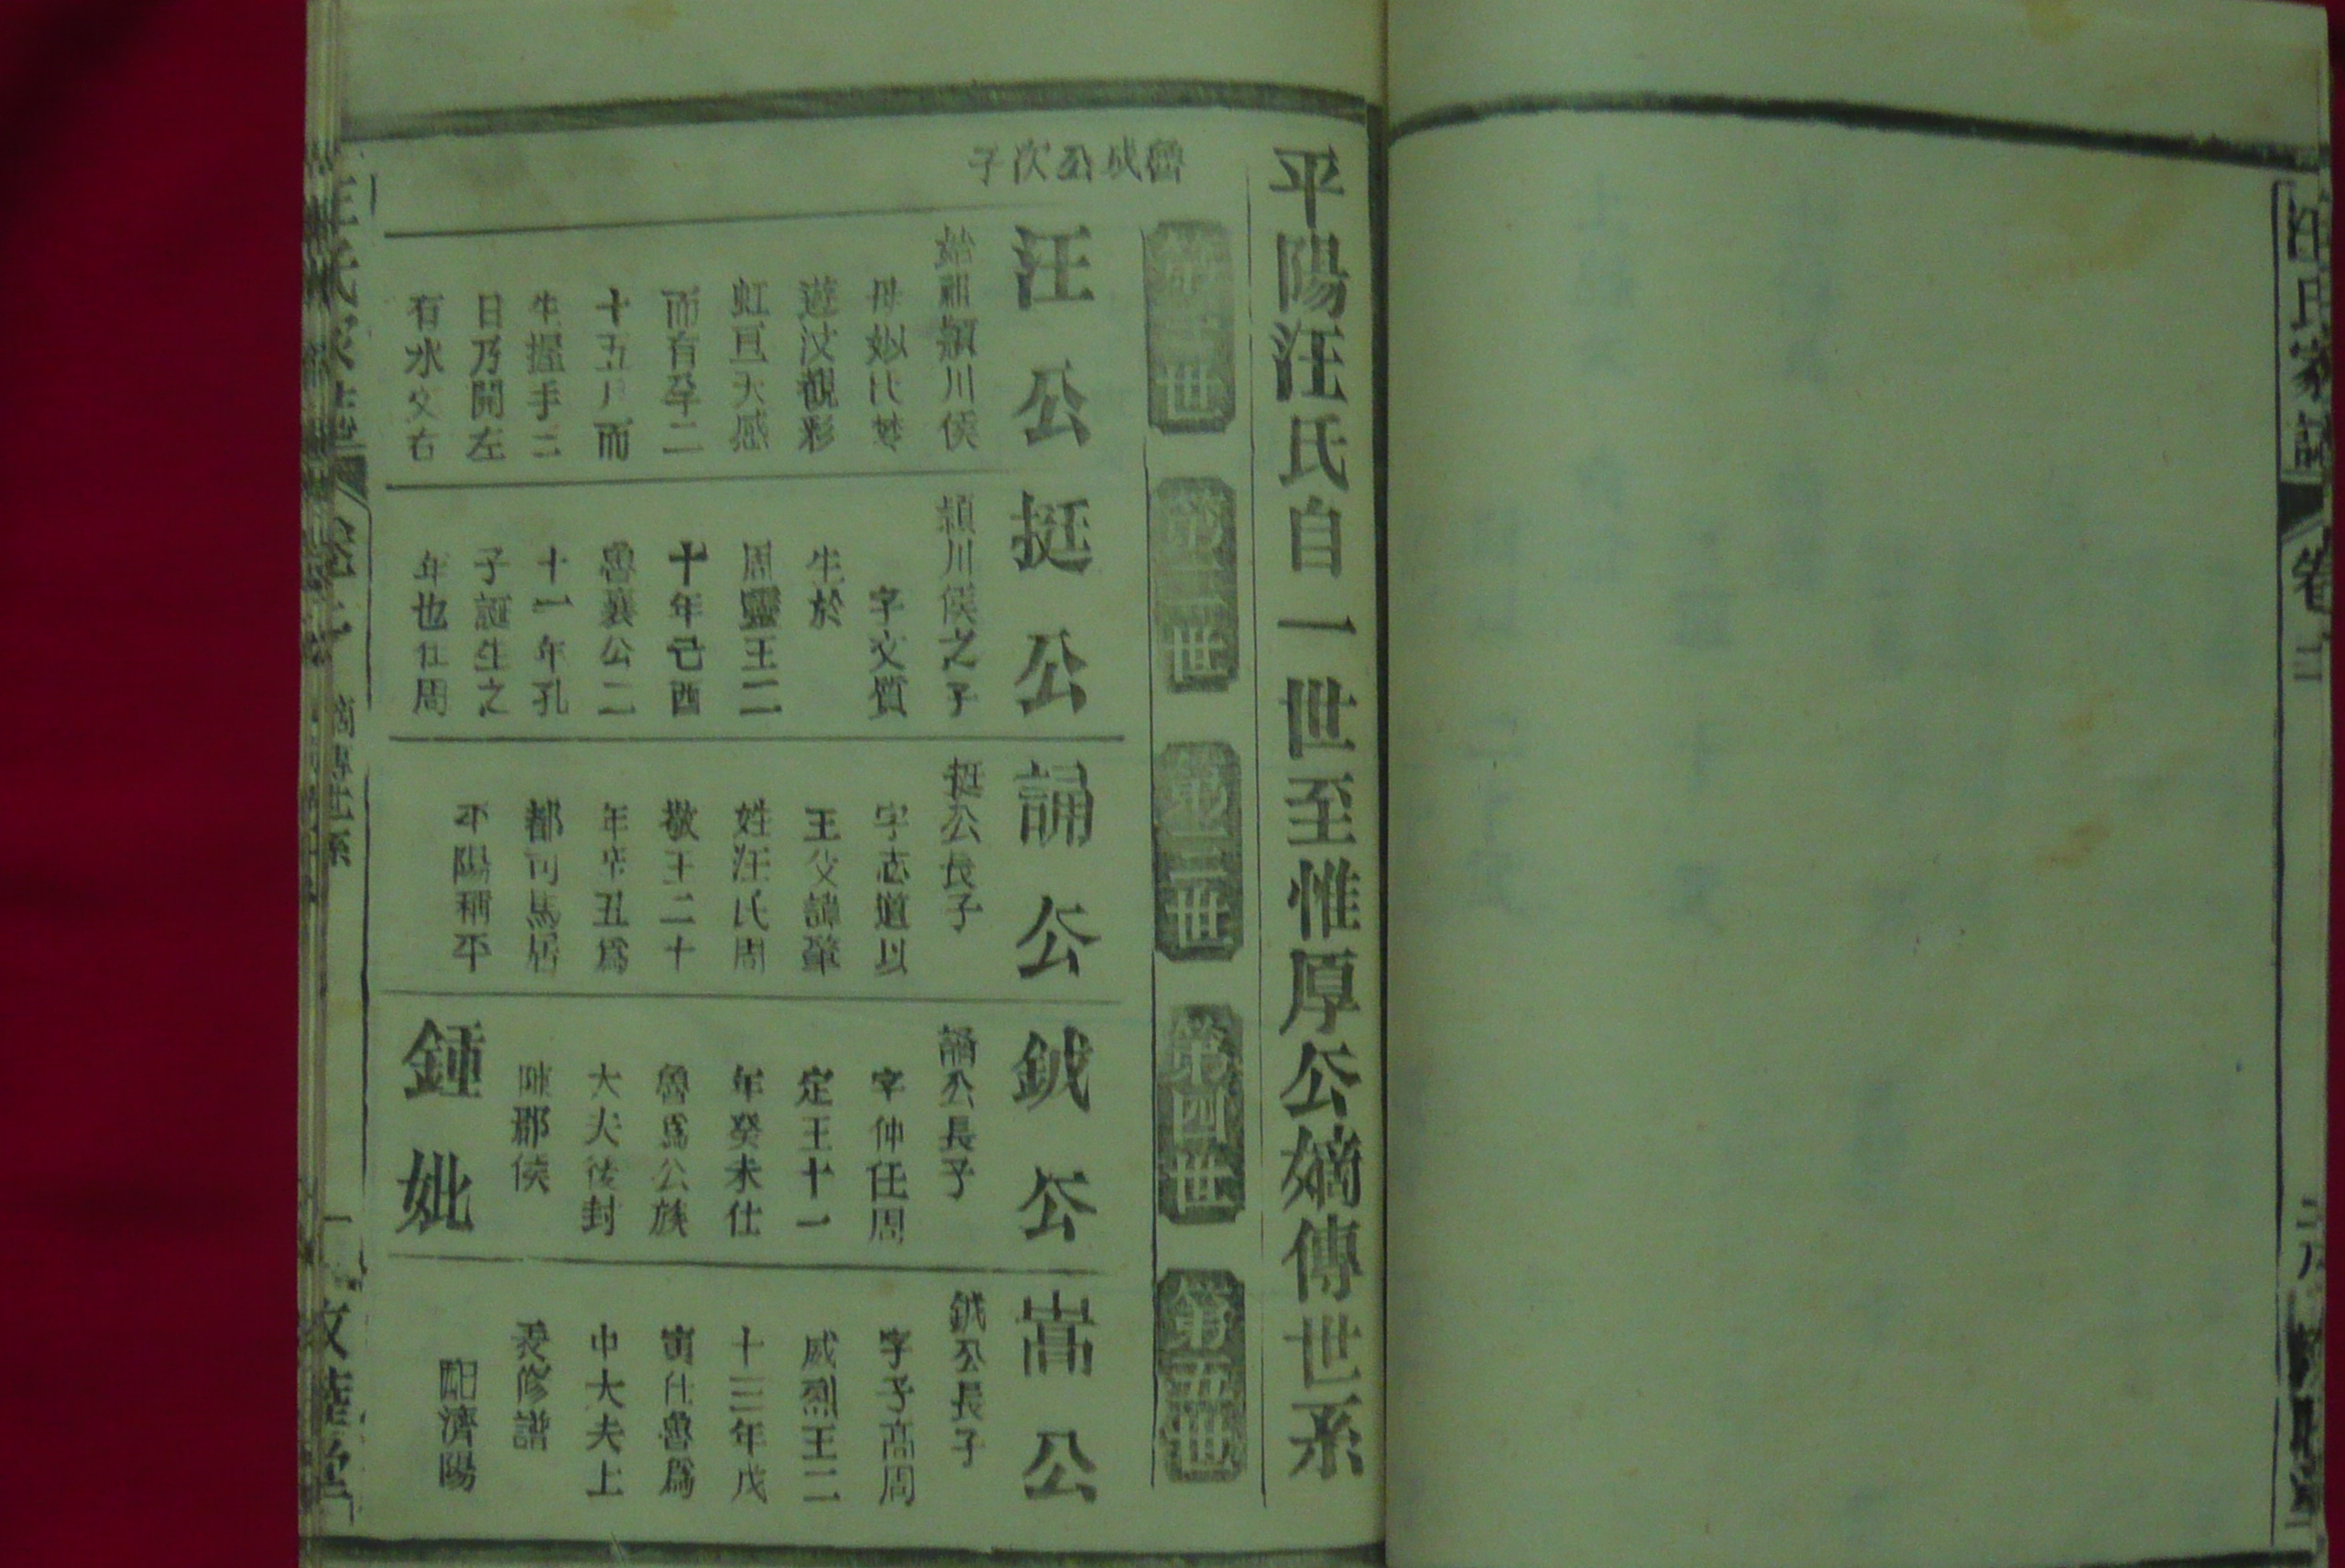 汪氏家譜
卷二
平陽汪氏自一世至惟厚公嫡傳世系
魯成公次子
第一世
汪公
始祖潁川侯
母姒氏夢
遊汶觀彩
虹亘天感
而有孕二
十五月而
生握手三
日乃開左
有水文右
第二世
挺公
潁川侯之子
字文質
生於
周靈王二
十年己酉
魯襄公二
十一年孔
子誕生之
年也仕周
第三世
誦公
挺公長子
字志道以
王父諱肇
姓汪氏周
敬王二十
年辛丑爲
都司馬居
平陽稱平
第四世
鉞公
誦公長子
字仲任周
定王十一
年癸未仕
魯爲公族
大夫後封
陳郡侯
鍾妣
第五世
嵩公
鉞公長子
字子高周
威烈王二
十三年戊
寅仕魯爲
中大夫上
表修譜
配濟陽
汪氏家譜
卷二
嫡傳世系
一
文華堂